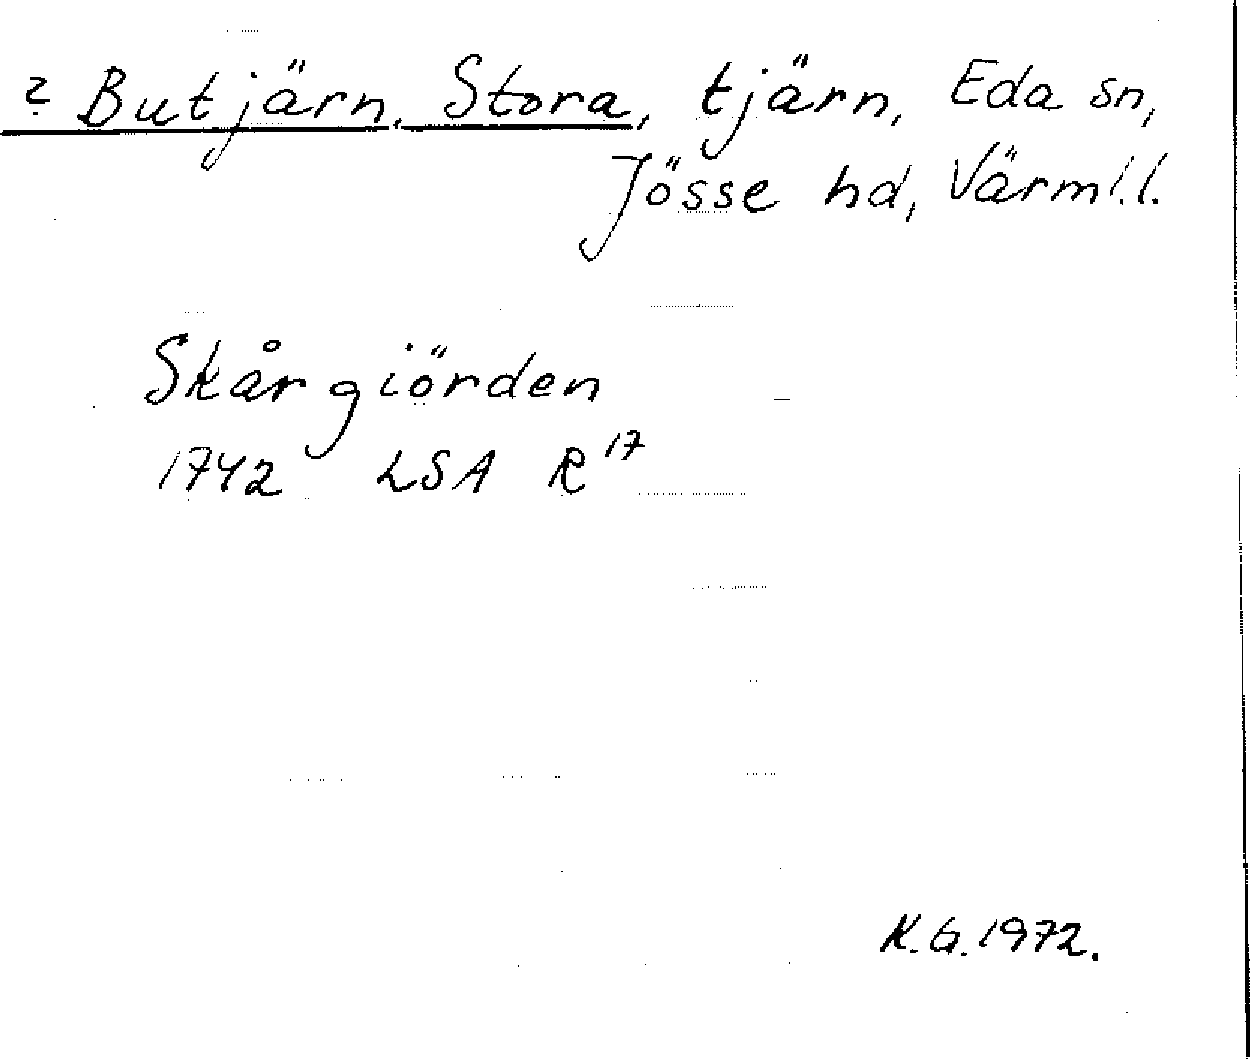 ? Butjärn, Stora, tjärn, Eda sn,
Jösse hd, Värml.l.
Skårgiörden
1742 LSA R 17
K.G. 1972.